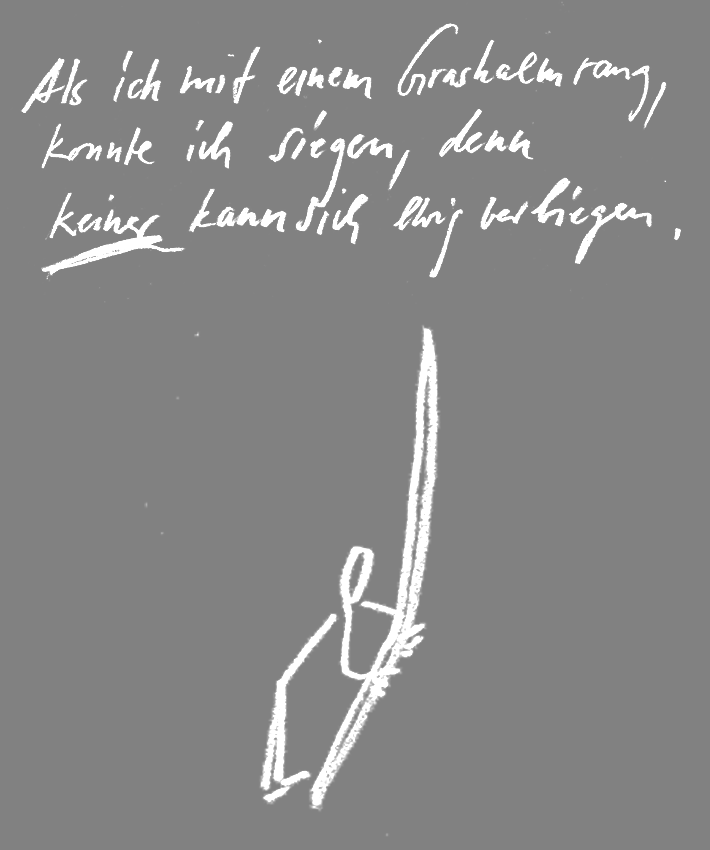 Als ich mit einem Grashalm rang,
konnte ich siegen, denn
keiner kann sich ewig verbiegen.